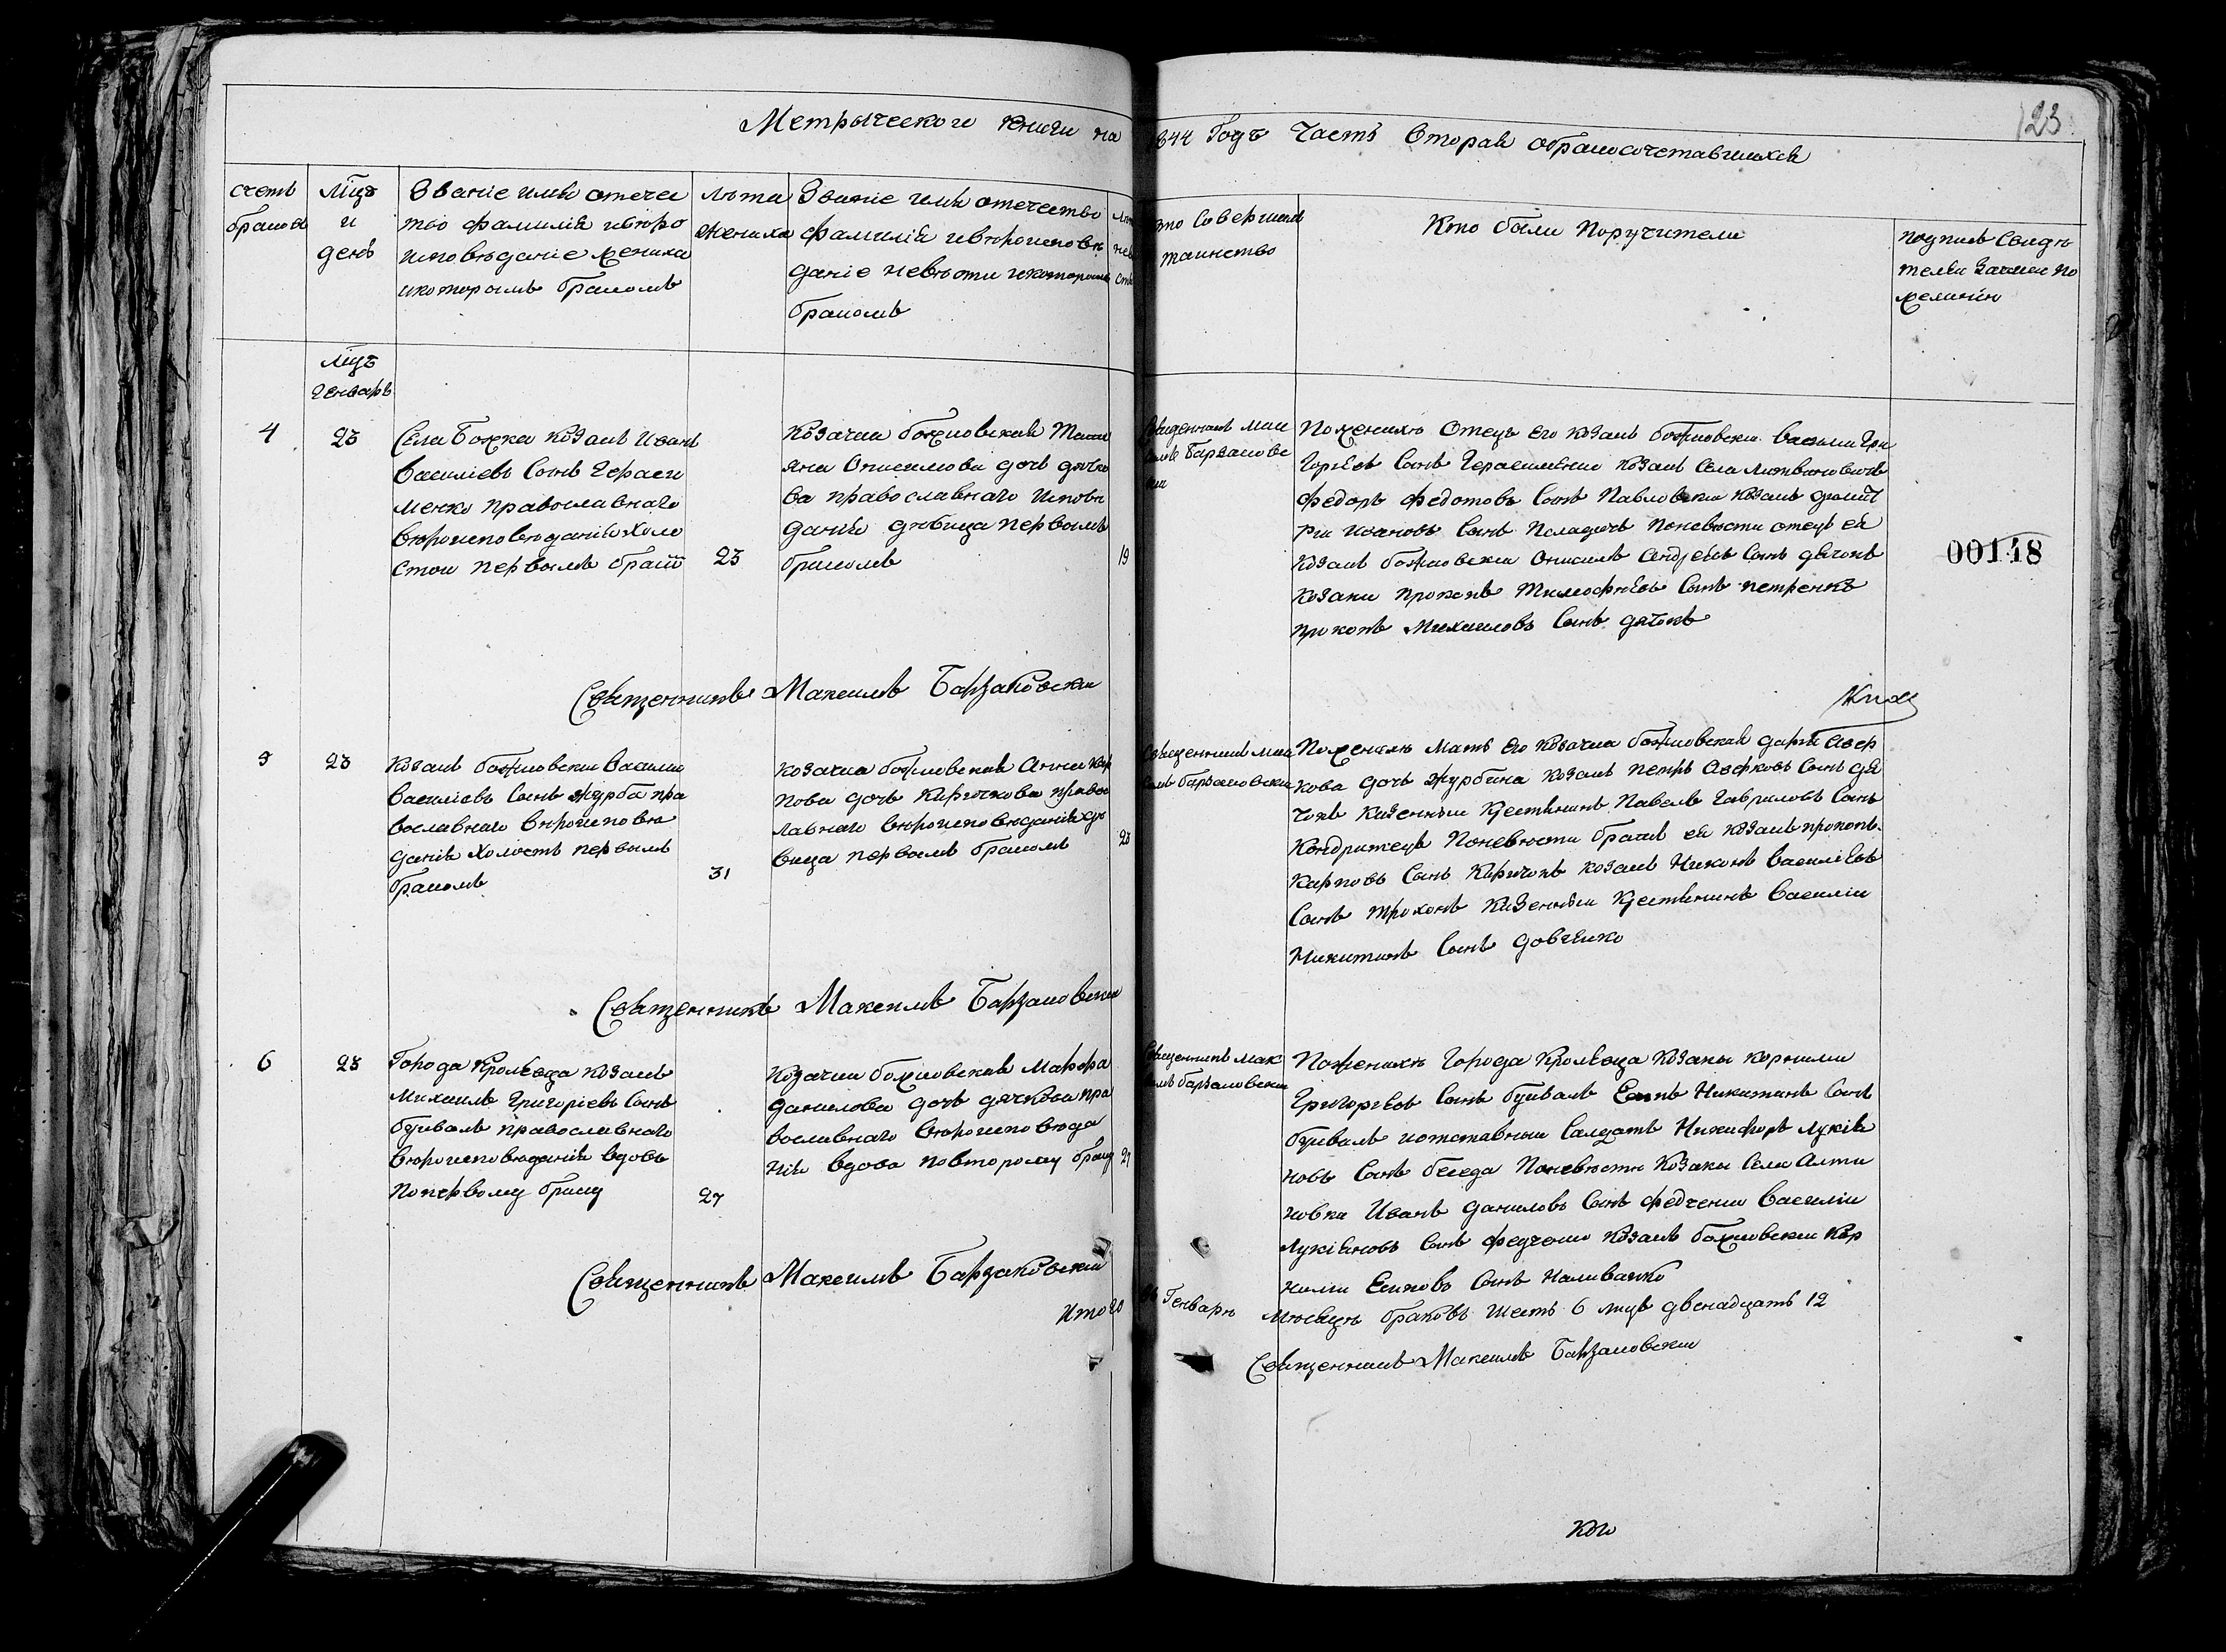 123
Метрыческои книги на 1844 Годъ Часть Вторая обракосочетавшихся
счетъ браковъ
Мцъ и день
Званіе имя отече
тво фамилія ивѣро
исповѣданіе жениха
икоторымъ бракомъ
лѣта жениха
Званіе имя отечество
фамилія ивѣроисповѣ
даніе невѣсты икоторымъ
бракомъ
лѣта невѣсты
кто Совершалъ
таинство
Кто были Поручители
подпись Свидѣ
телей Записи по
желанію
Мцъ
Генварь
4
23
Села Божка Козакъ Иванъ
Василіевъ Сынъ Гераси
менко православнаго
вѣроисповѣданія холо
стои первымъ брако
23
Козачка божковская Татия
яна Онисимова дочь дячко
ва православнаго исповѣ
данія дѣвица первымъ
бракомъ
19
Священникъ Мак
симъ Барзаковс
кии
Поженихѣ Отецъ его козакъ божковскии василии Гри
горіевъ Сынъ Герасименко козакъ Села Литвиновичъ
федоръ федотовъ Сынъ Павловскии козакъ дмит
рии ивановъ Сынъ Поневѣсти отецъ ея
козакъ божковскии Онисимъ Андреевъ Сынъ дячокъ
козаки прокопъ Тимофѣевъ Сынъ петренко
прокопъ Михаиловъ Сынъ дячокъ
00148
Священникъ Максимъ Барзаковскии
5
23
Козакъ божковскии Василии
Василіевъ Сынъ журба пра
вославнаго вѣроисповѣ
данія холостъ первымъ
бракомъ
31
козачка божковская Анна кар
пова дочь Киричкова правос
лавнаго вѣроисповѣданія дѣ
вица первымъ бракомъ
23
Священникъ Мак
симъ барзаковскии
Поженихѣ Мать его козачка божковская дарія Авер
кова дочь журбина козакъ петръ Аверковъ Сынъ дя
чокъ казенныи крестянинъ Павелъ Гавриловъ Сынъ
Кондрижецъ Поневѣсти братъ ея козакъ прокопъ
Карповъ Сынъ Киричокъ козакъ Никонъ василіевъ
Сынъ трохонъ казенныи крестянинъ Василіи
Никитинъ Сынъ довченко
Священникъ Максимъ Барзаковскии
6
23
Города Кролевца козакъ
Михаилъ Григоріевъ Сынъ
буивалъ православнаго
вѣроисповѣданія вдовъ
Попервому браку
27
Козачка божковская Марфа
данилова дочь дячкова пра
вославнаго вѣроисповѣда
нія вдова повторому браку
27
Священникъ Мак
симъ барзаковскии
Поженихѣ Города Кролевца козаки корнилии
Григоріевъ Сынъ буивалъ Есипъ Никитинъ Сынъ
буивалъ иотставныи Салдатъ Никифоръ лукія
новъ Сынъ беседа Поневѣсти козаки Села Алти
новки Иванъ даниловъ Сынъ федченко Василіи
Лукіяновъ Сынъ федченко козакъ божковскии Кор
нилии Есиповъ Сынъ Наливайко
Священникъ Максимъ Барзаковскии
Итого въ Генварѣ Мѣсяцѣ браковъ шесть 6 лицъ двенадцать 12
Священникъ Максимъ Барзаковскии